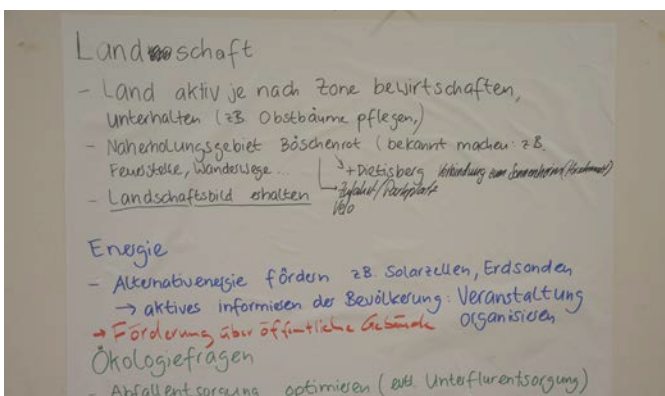 Landschaft
- Land aktiv je nach Zone bewirtschaften,
unterhalten (zB. Obstbäume pflegen,)
- Naherholungsgebiet Böschenrot (bekannt machen: zB.
Feuerstelle, Wanderwege...
+ Dietisberg Verbindung zum Sonnenheim
- Landschaftsbild erhalten
Zufahrt/Parkplatz
Velo
Energie
- Alternativenergie fördern zB. Solarzellen, Erdsonden
→ aktives informieren der Bevölkerung: Veranstaltung
organisieren
→ Förderung über öffentliche Gebäude
Ökologiefragen
- Abfallentsorgung optimieren (evtl. Unterflurentsorgung)